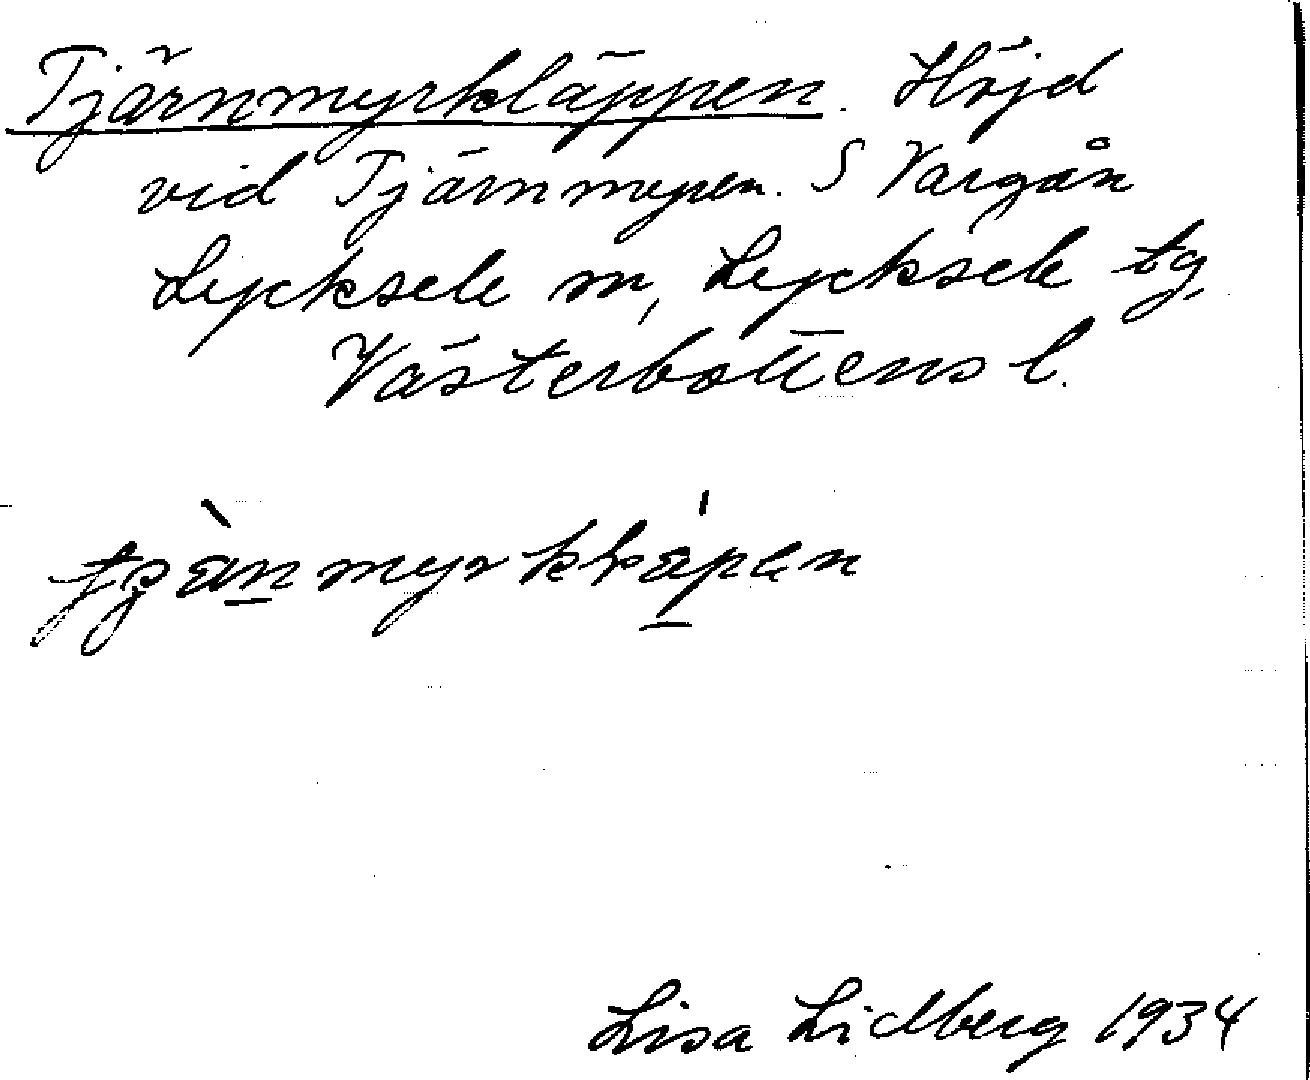 Tjärnmyrkläppen. Höjd
vid Tjärnmyren. S Vargån
Lycksele m, Lycksele tg,
Västerbottens l.
Lisa Lidberg 1934